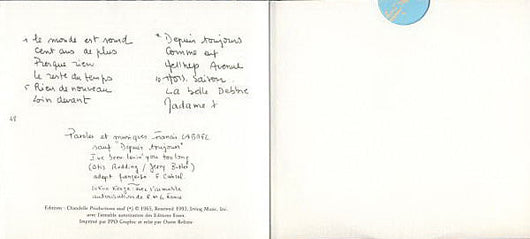 1 le monde est rond
Cent ans de plus
Presque rien
le reste du temps
5 Rien de nouveau
Loin devant
* Depuis toujours
Comme eux
Yellnep Avenue
10 Hors saison
La belle Debbie
Madame X
Paroles et musiques Francis CABREL
sauf "Depuis toujours"
I've been lovin' you too long
(Otis Redding / Jerry Butler)
adapt française F. Cabrel
avec l'aimable
autorisation de
Editions : Chandelle Productions sauf (*) © 1965, Renewed 1993, Irving Music, Inc.
avec l'aimable autorisation des Editions Essex
Imprimé par PPO Graphic et relié par Ouest Reliure